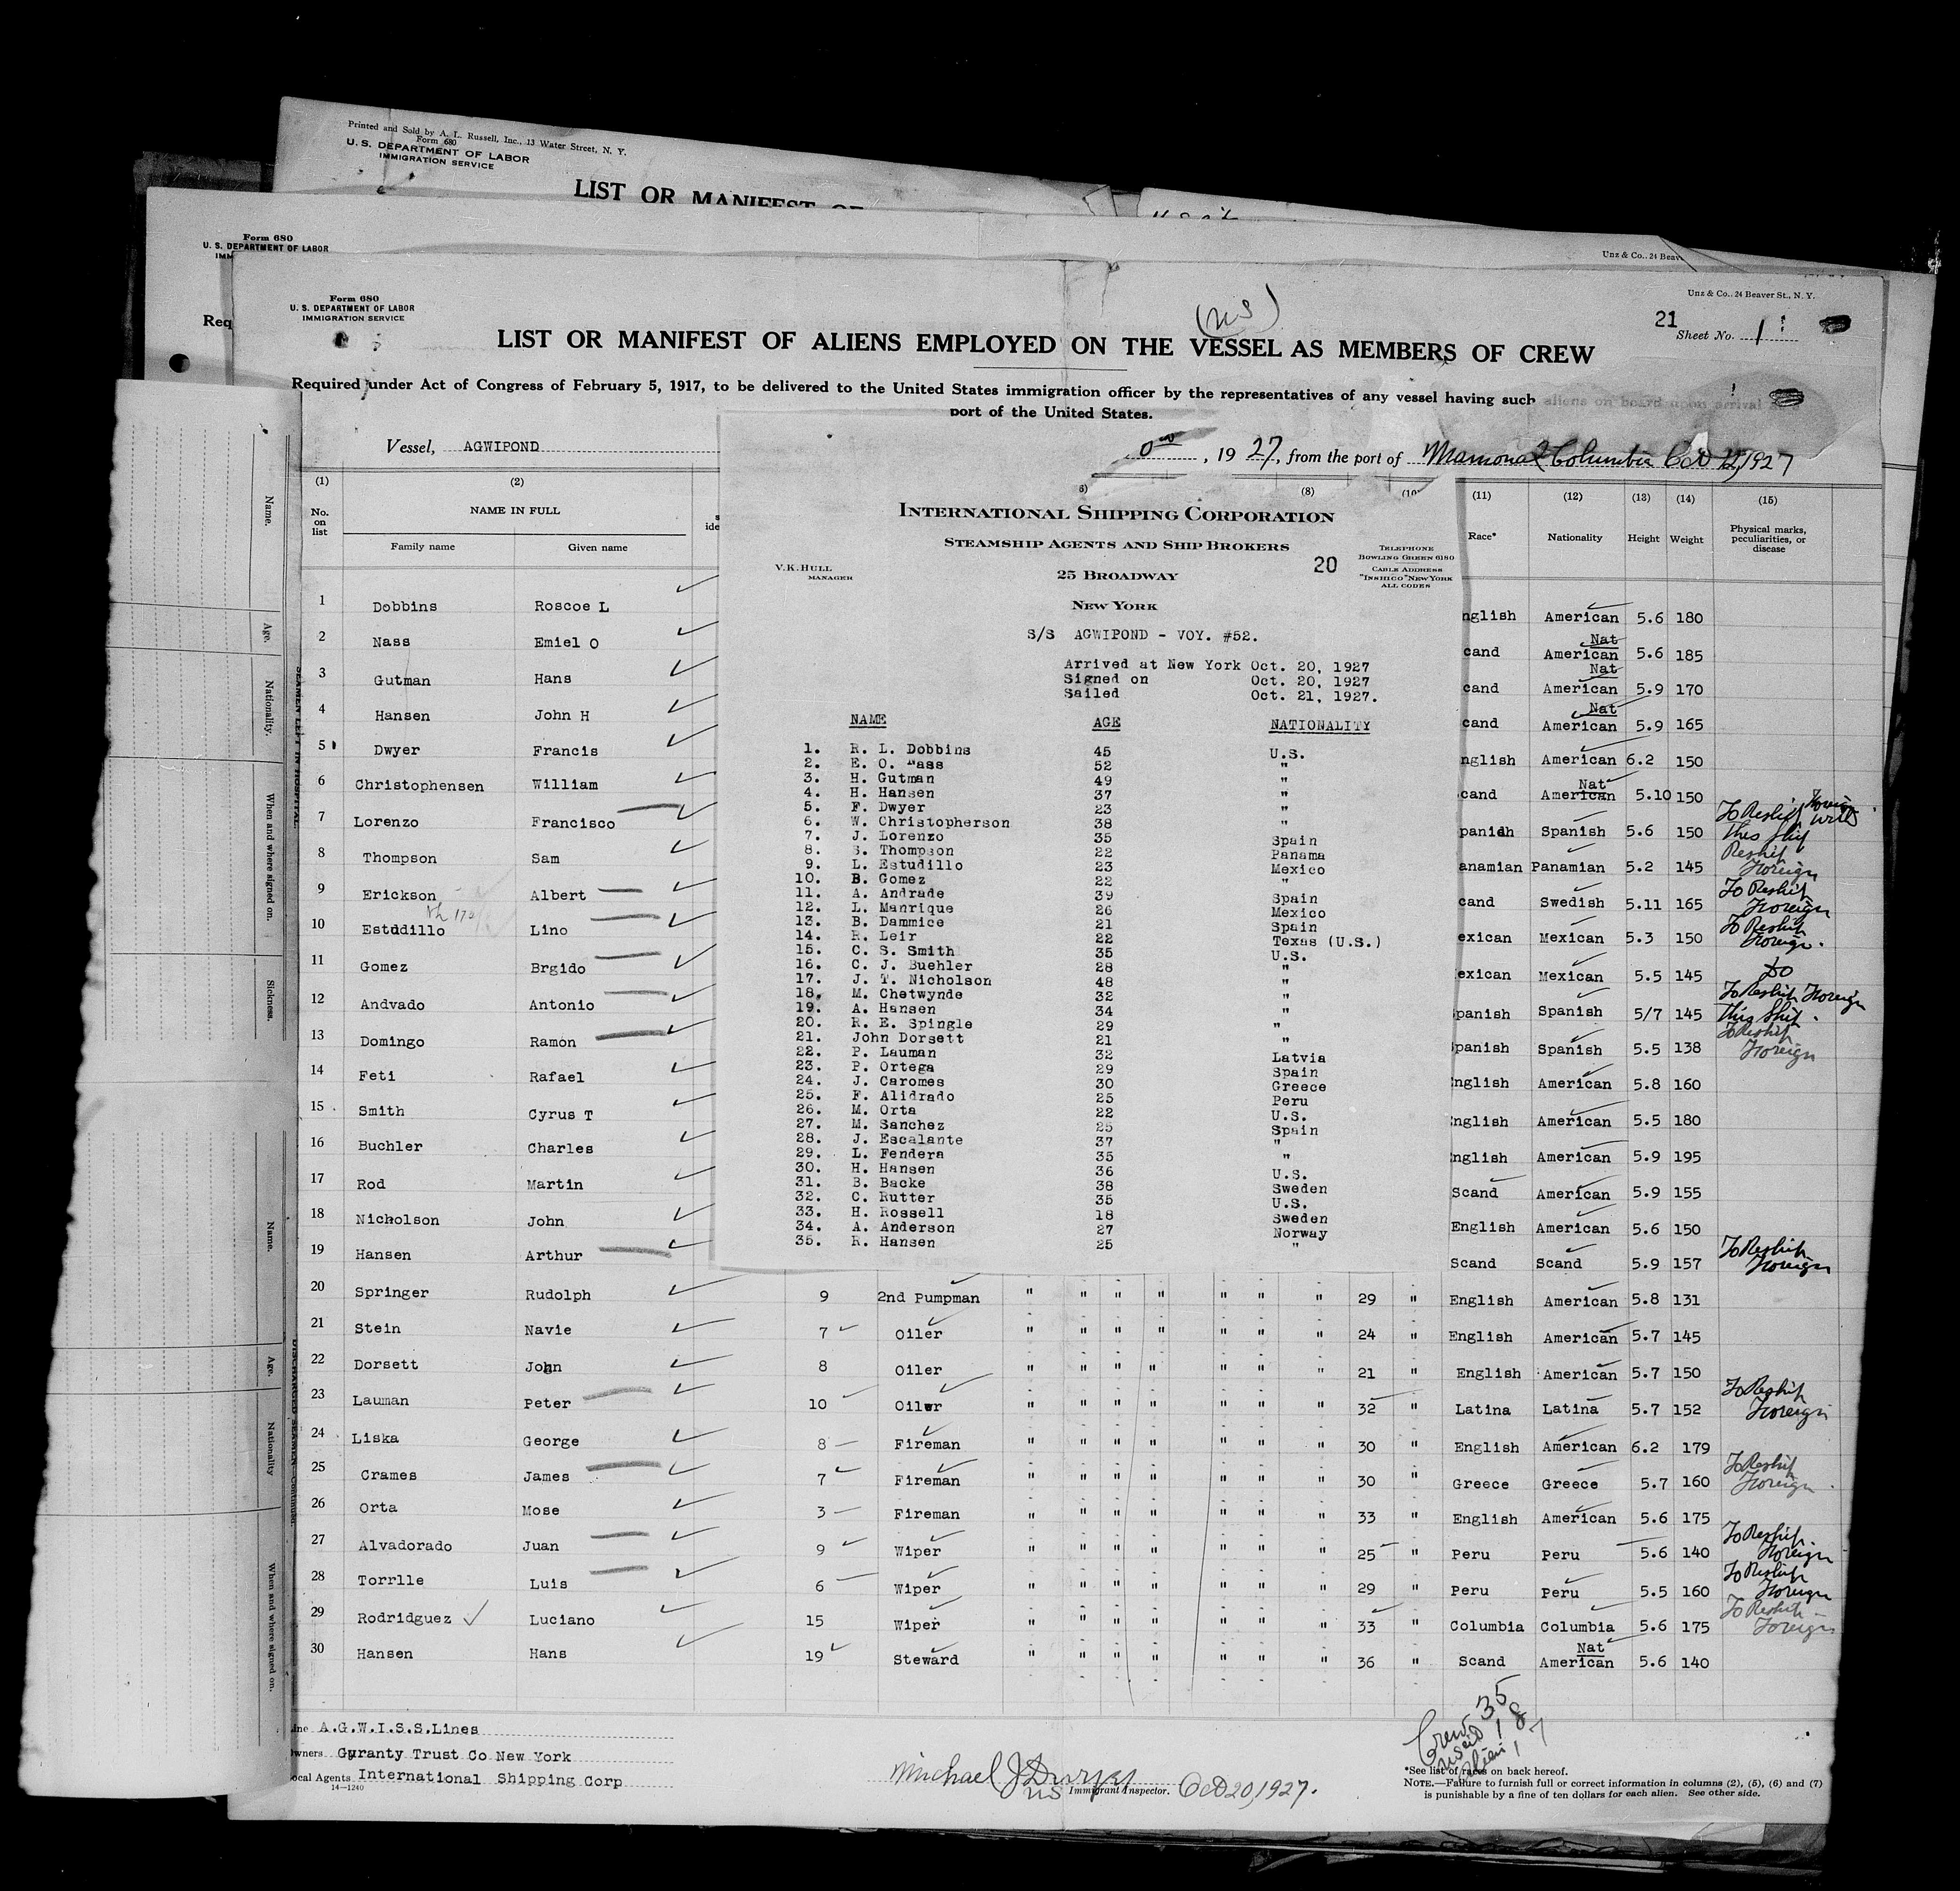 Printed and Sold by A. L. Russell, Inc., 13 Water Street, N. Y.
Form 680
U. S. DEPARTMENT OF LABOR
IMMIGRATION SERVICE
LIST OR MANIFEST OF
Form 680
U. S. DEPARTMENT OF LABOR
IMM
Unz & Co., 24 Beav
Req
Form 680
U. S. DEPARTMENT OF LABOR
IMMIGRATION SERVICE
Unz & Co., 24 Beaver St., N. Y.
21
Sheet No. 1
(US)
LIST OR MANIFEST OF ALIENS EMPLOYED ON THE VESSEL AS MEMBERS OF CREW
Required under Act of Congress of February 5, 1917, to be delivered to the United States immigration officer by the representatives of any vessel having such aliens on board upon arrival
port of the United States.
Vessel, AGWIPOND
, 19 27, from the port of Mamonal Columbia Oct 12, 1927
(1) (2) (8) (11) (12) (13) (14) (15)
No. on list NAME IN FULL Race* Nationality Height Weight Physical marks, peculiarities, or disease
Family name Given name
INTERNATIONAL SHIPPING CORPORATION
STEAMSHIP AGENTS AND SHIP BROKERS
V.K.HULL
MANAGER
25 BROADWAY
20
TELEPHONE
BOWLING GREEN 6180
CABLE ADDRESS
"INSHICO" NEW YORK
ALL CODES
NEW YORK
S/S AGWIPOND - VOY. #52.
Arrived at New York Oct. 20, 1927
Signed on Oct. 20, 1927
Sailed Oct. 21, 1927.
NAME AGE NATIONALITY
1. R. L. Dobbins 45 U.S.
2. E. O. Nass 52 "
3. H. Gutman 49 "
4. H. Hansen 37 "
5. F. Dwyer 23 "
6. W. Christopherson 38 "
7. J. Lorenzo 35 Spain
8. S. Thompson 22 Panama
9. L. Estudillo 23 Mexico
10. B. Gomez 22 "
11. A. Andrade 39 Spain
12. L. Manrique 26 Mexico
13. B. Dammice 21 Spain
14. R. Leir 22 Texas (U.S.)
15. C. S. Smith 35 U.S.
16. C. J. Buehler 28 "
17. J. T. Nicholson 48 "
18. M. Chetwynde 32 "
19. A. Hansen 34 "
20. R. E. Spingle 29 "
21. John Dorsett 21 "
22. P. Lauman 32 Latvia
23. P. Ortega 29 Spain
24. J. Caromes 30 Greece
25. F. Alidrado 25 Peru
26. M. Orta 22 U.S.
27. M. Sanchez 25 Spain
28. J. Escalante 37 "
29. L. Fendera 35 "
30. H. Hansen 36 U.S.
31. B. Backe 38 Sweden
32. C. Rutter 35 U.S.
33. H. Rossell 18 Sweden
34. A. Anderson 27 Norway
35. R. Hansen 25 "
1 Dobbins Roscoe L nglish American 5.6 180
2 Nass Emiel O cand Nat American 5.6 185
3 Gutman Hans cand Nat American 5.9 170
4 Hansen John H cand Nat American 5.9 165
5 Dwyer Francis nglish American 6.2 150
6 Christophensen William cand Nat American 5.10 150
7 Lorenzo Francisco panidh Spanish 5.6 150 To Reship Foreign this Ship
8 Thompson Sam anamian Panamian 5.2 145 Reship Foreign
9 Erickson Albert cand Swedish 5.11 165 To Reship Foreign
10 Estddillo Lino exican Mexican 5.3 150 To Reship Foreign.
11 Gomez Brgido exican Mexican 5.5 145 Do
12 Andvado Antonio panish Spanish 5/7 145 To Reship Foreign this Ship.
13 Domingo Ramon panish Spanish 5.5 138 To Reship Foreign
14 Feti Rafael nglish American 5.8 160
15 Smith Cyrus T nglish American 5.5 180
16 Buchler Charles nglish American 5.9 195
17 Rod Martin Scand American 5.9 155
18 Nicholson John English American 5.6 150
19 Hansen Arthur Scand Scand 5.9 157 To Reship Foreign
20 Springer Rudolph 9 2nd Pumpman " " " " " " " 29 " English American 5.8 131
21 Stein Navie 7 Oiler " " " " " " " 24 " English American 5.7 145
22 Dorsett John 8 Oiler " " " " " " " 21 " English American 5.7 150
23 Lauman Peter 10 Oiler " " " " " " " 32 " Latina Latina 5.7 152 To Reship Foreign
24 Liska George 8 Fireman " " " " " " " 30 " English American 6.2 179
25 Crames James 7 Fireman " " " " " " " 30 " Greece Greece 5.7 160 To Reship Foreign
26 Orta Mose 3 Fireman " " " " " " " 33 " English American 5.6 175
27 Alvadorado Juan 9 Wiper " " " " " " " 25 " Peru Peru 5.6 140 To Reship Foreign
28 Torrlle Luis 6 Wiper " " " " " " " 29 " Peru Peru 5.5 160 To Reship Foreign
29 Rodridguez Luciano 15 Wiper " " " " " " " 33 " Columbia Columbia 5.6 175 To Reship Foreign
30 Hansen Hans 19 Steward " " " " " " " 36 " Scand Nat American 5.6 140
Crew 35
uscit 18
alien 17
Line A.G.W.I.S.S.Lines
Owners Guranty Trust Co New York
Local Agents International Shipping Corp
14-1240
Michael J Dwyer
US Immigrant Inspector. Oct 20, 1927.
*See list of races on back hereof.
NOTE.—Failure to furnish full or correct information in columns (2), (5), (6) and (7)
is punishable by a fine of ten dollars for each alien. See other side.
Name.
Age.
Nationality.
When and where signed on.
Sickness.
SEAMEN LEFT IN HOSPITAL
Name.
Age.
Nationality
When and where signed on.
DISCHARGED SEAMEN—Continued.